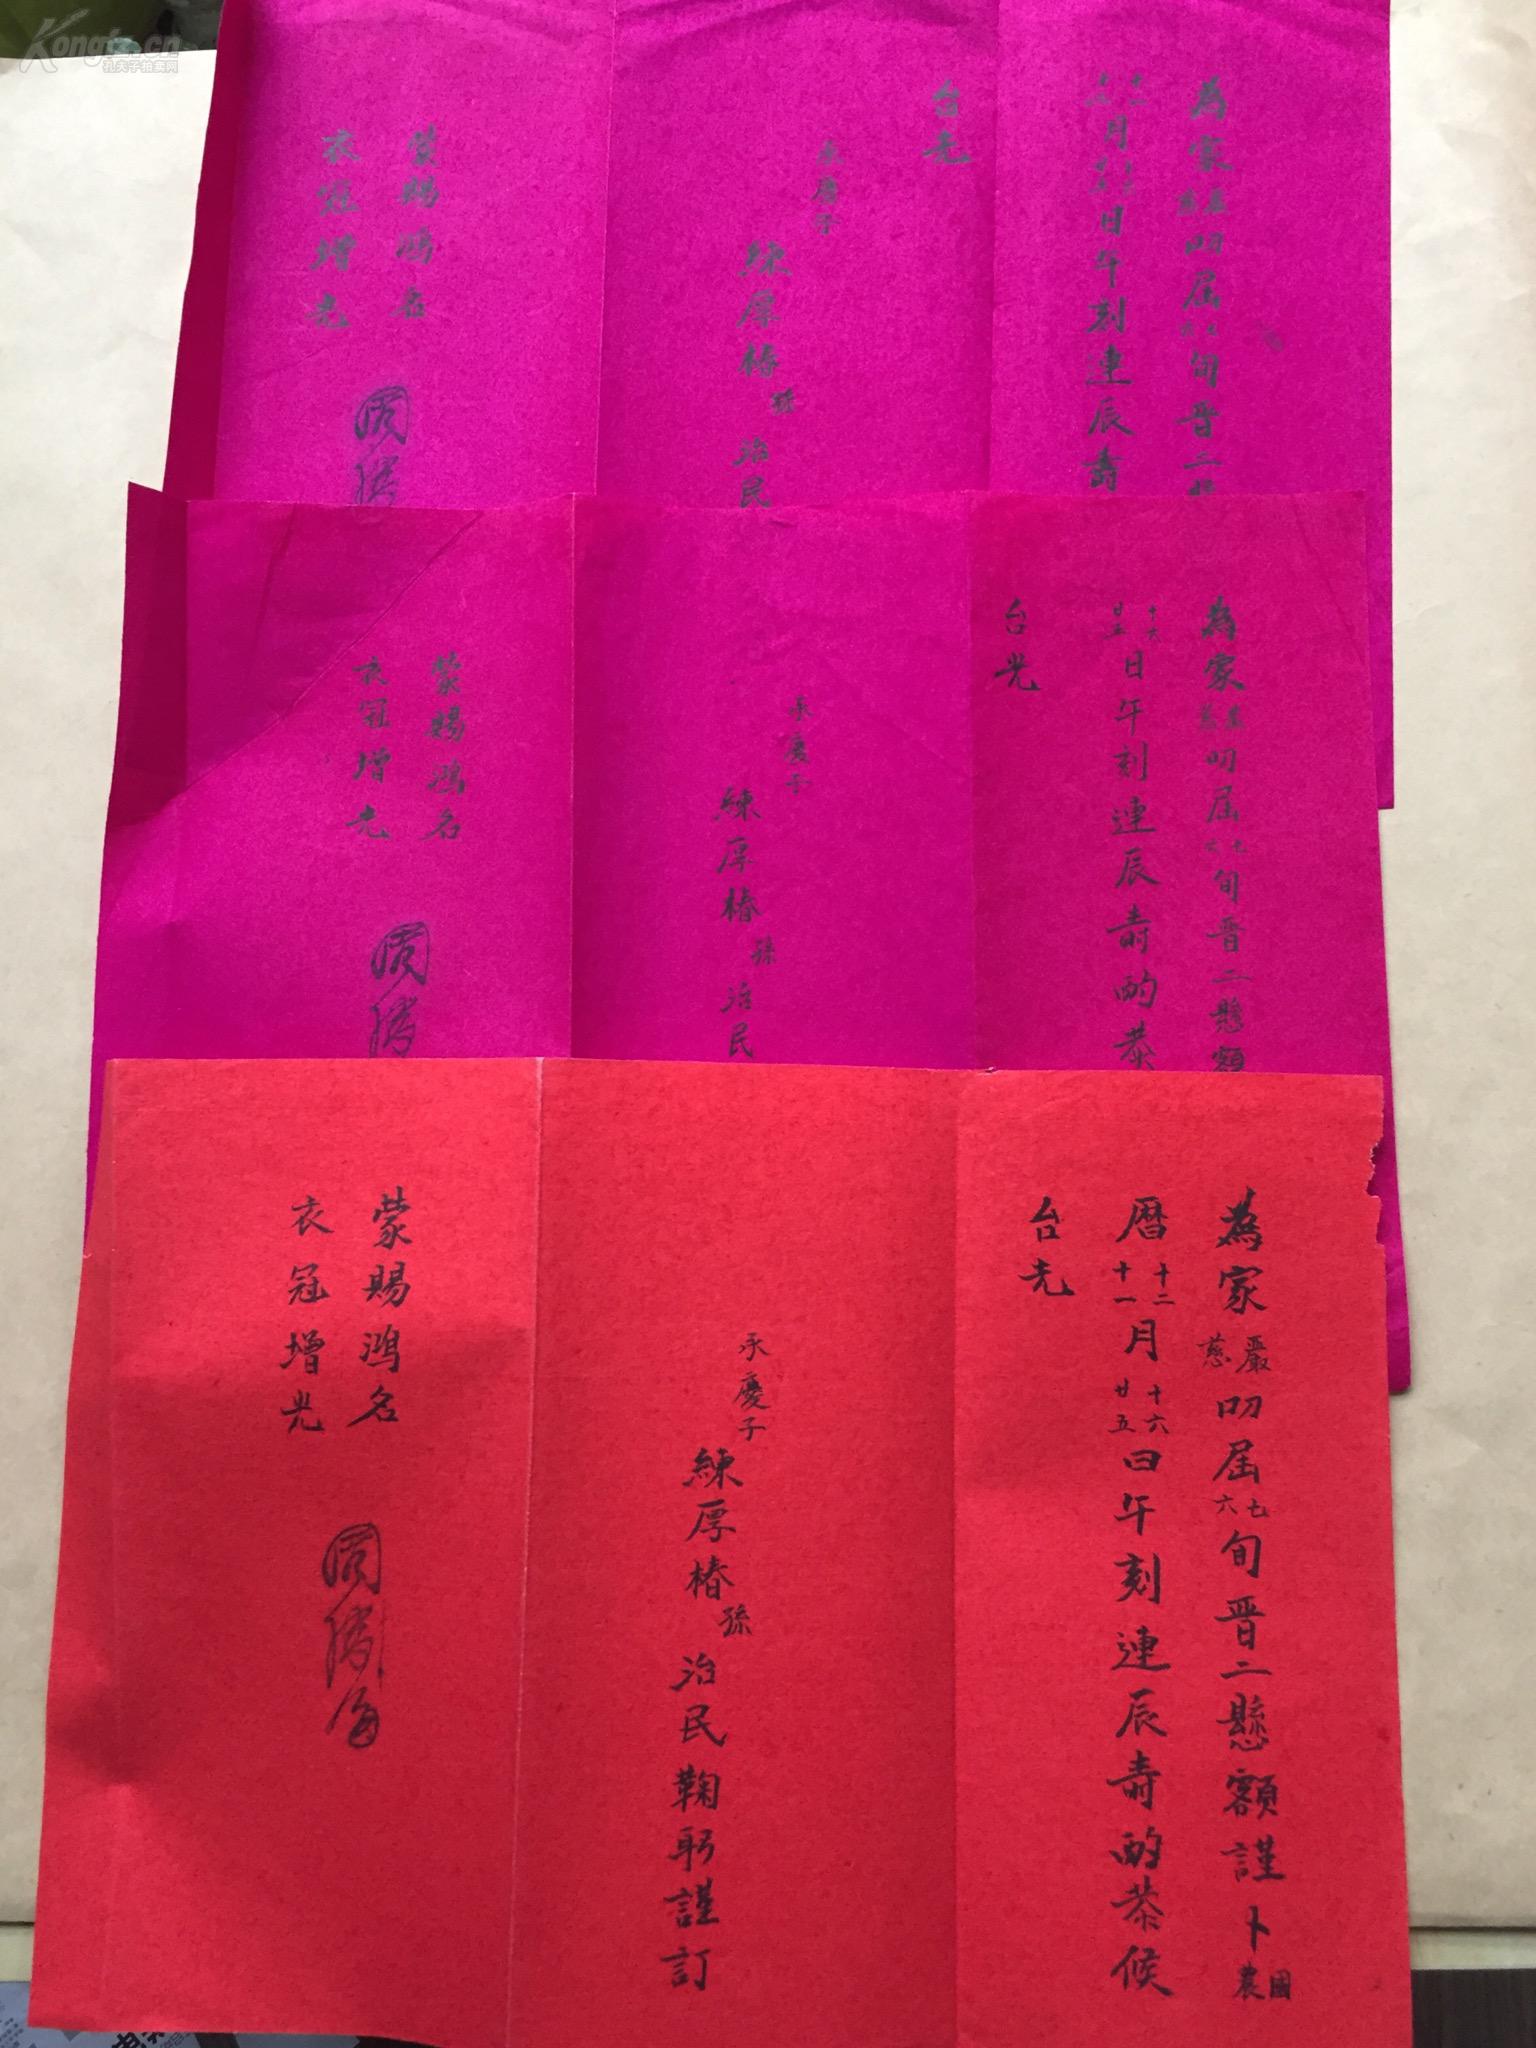 Kongfz.cn
孔夫子拍卖网
為家嚴慈叨屆七六旬晋二
十一月十六日午刻連辰壽
台光
承慶子
練厚椿孫治民
蒙賜鴻名
衣冠增光
為家嚴慈叨屆七六旬晋二懸額
十六廿五日午刻連辰壽酌恭
台光
承慶子
練厚椿孫治民
蒙賜鴻名
衣冠增光
為家嚴慈叨屆七六旬晋二懸額謹卜國農
曆十二十一月十六廿五日午刻連辰壽酌恭候
台光
承慶子
練厚椿孫治民鞠躬謹訂
蒙賜鴻名
衣冠增光